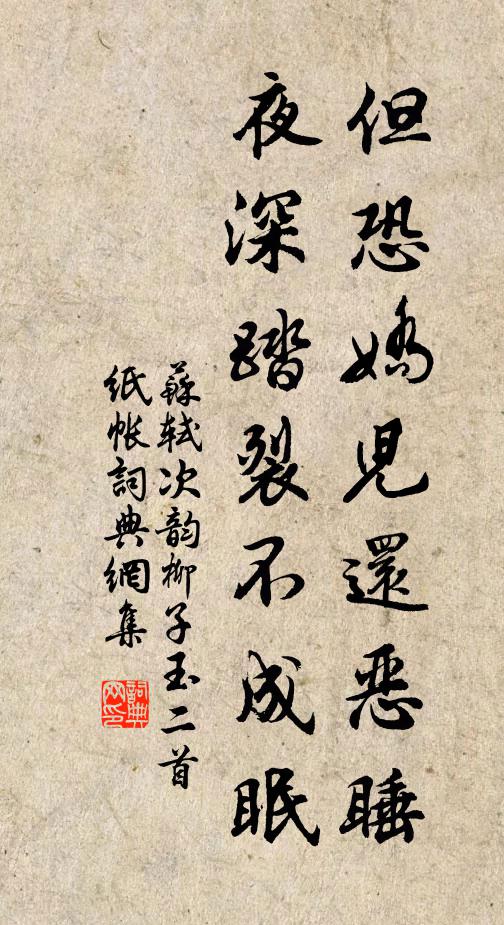 但恐嬌兒還惡睡
夜深踏裂不成眠
蘇軾次韵柳子玉二首
紙帐詞典網集
詞典
网印